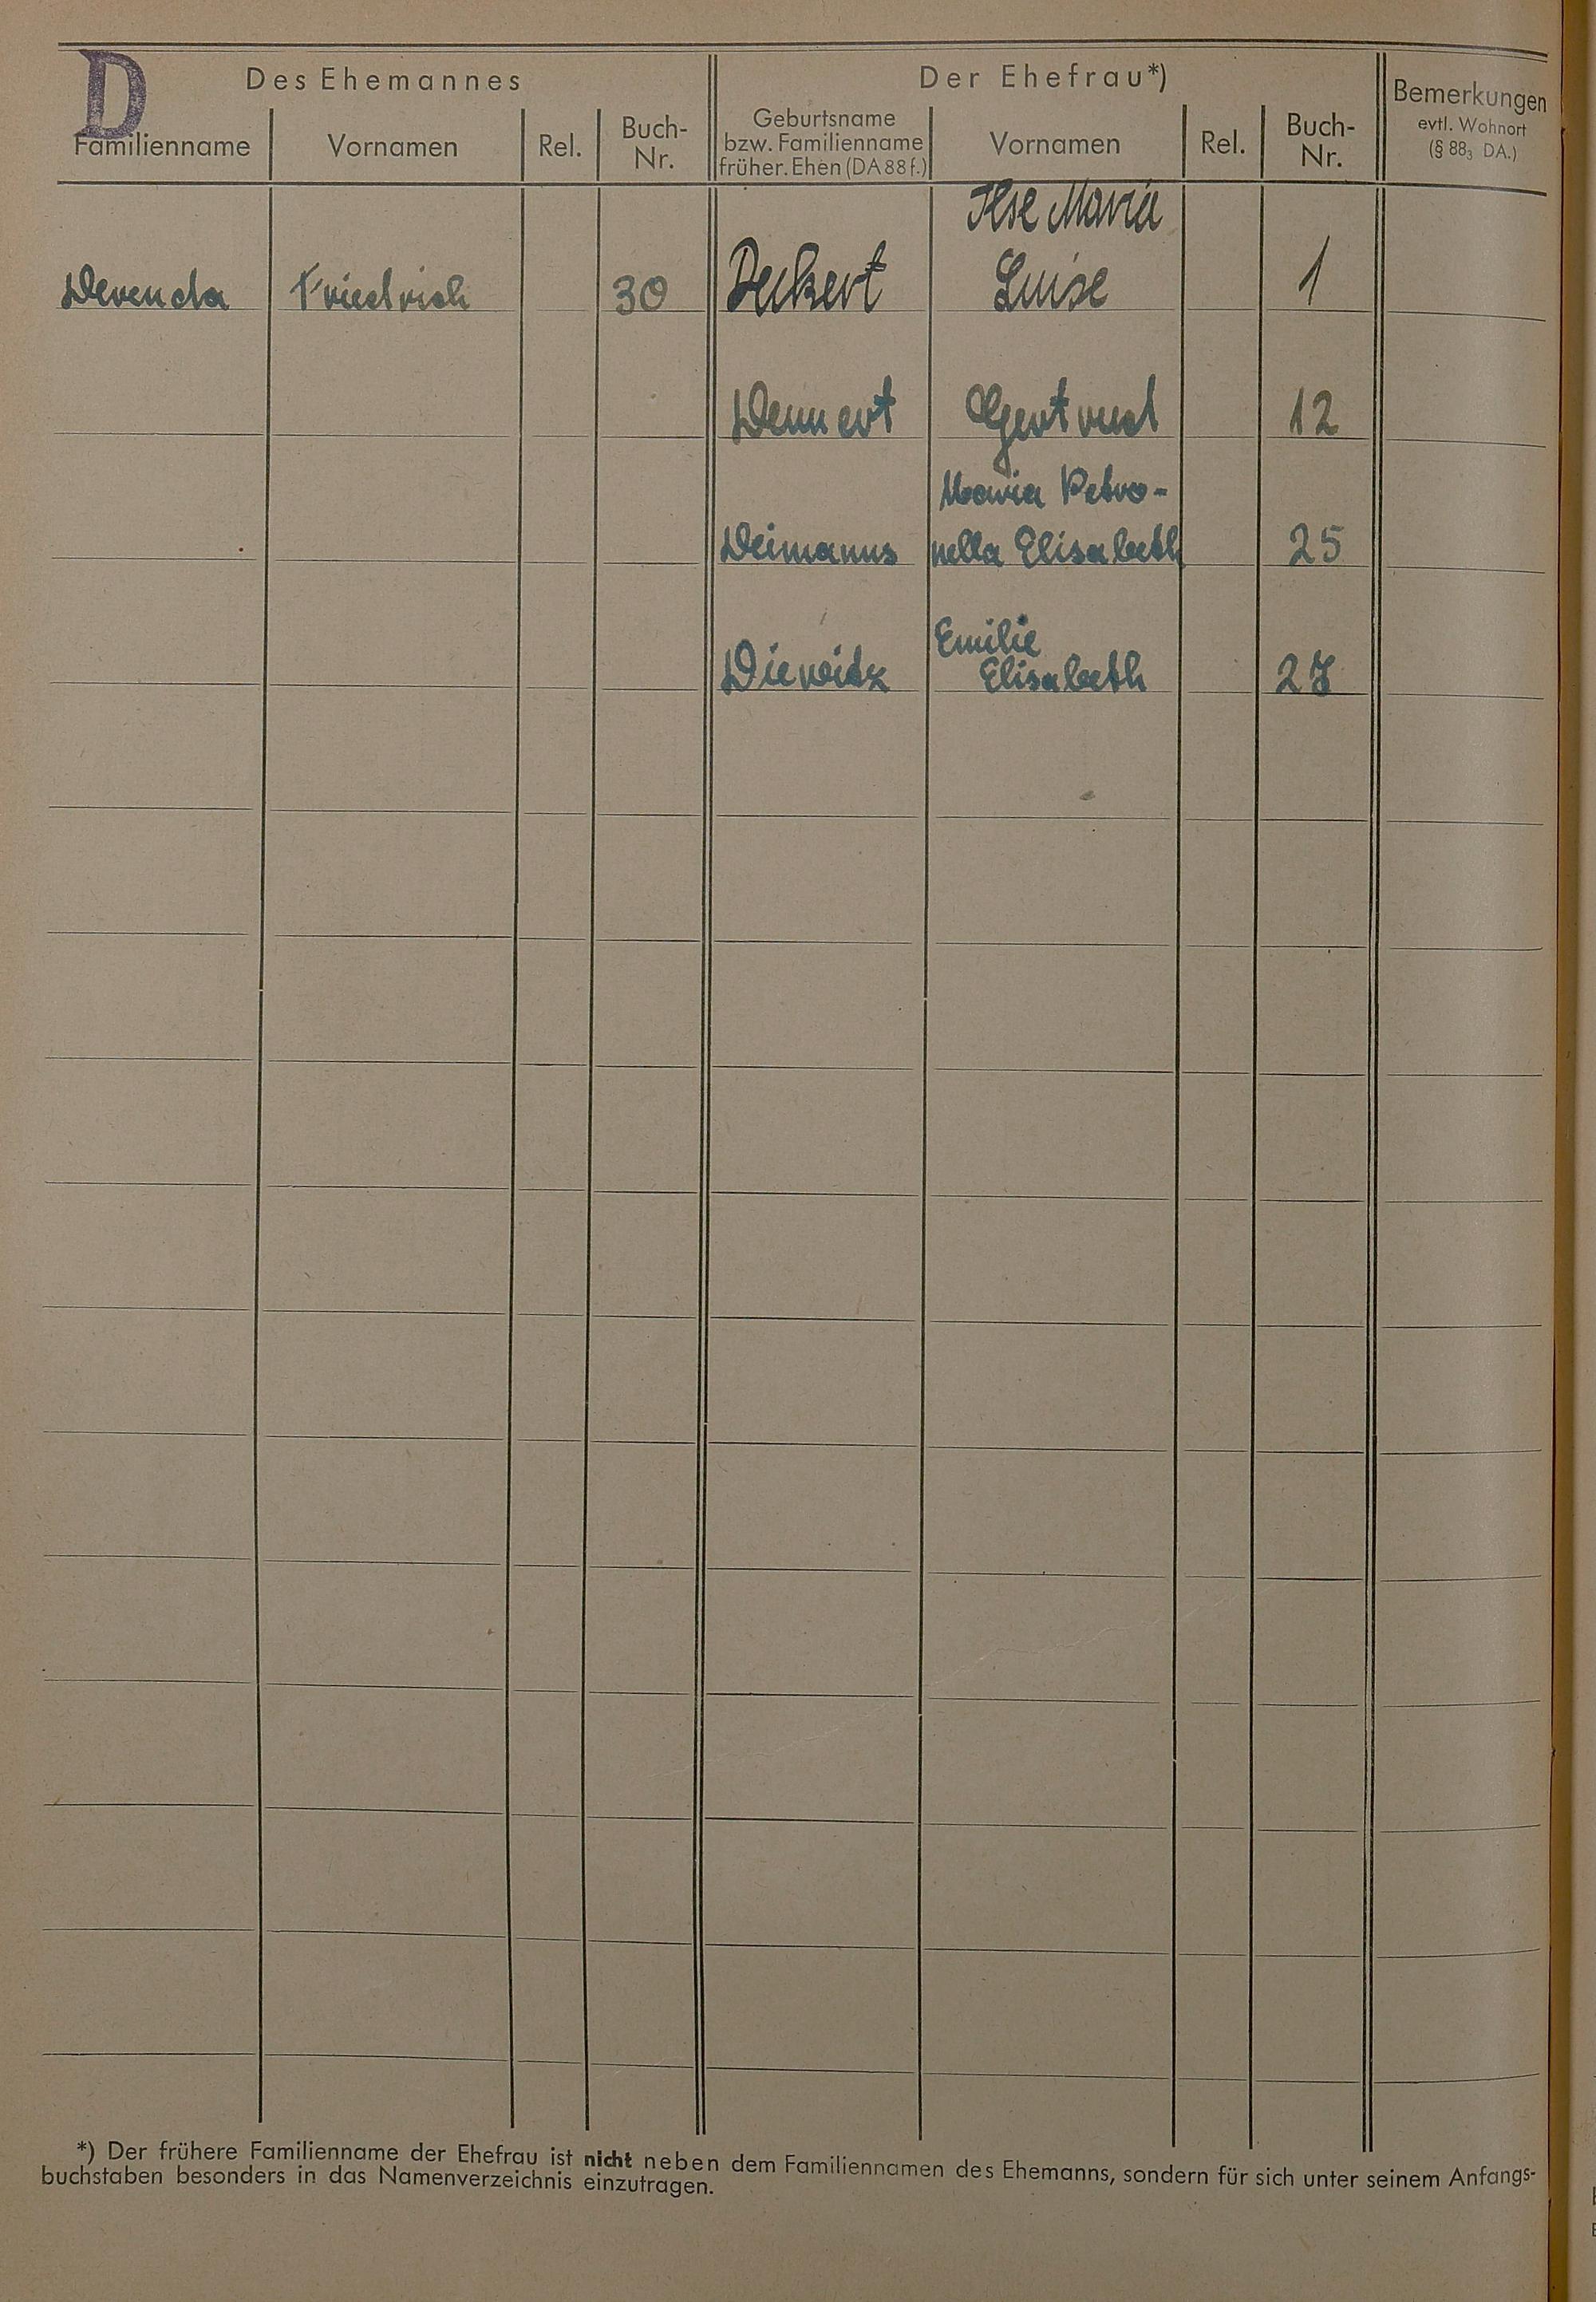 D
Des Ehemannes
Der Ehefrau*)
Familienname
Vornamen
Rel.
Buch-
Nr.
Geburtsname
bzw. Familienname
früher. Ehen (DA 88 f.)
Vornamen
Rel.
Buch-
Nr.
Bemerkungen
evtl. Wohnort
(§ 88₃ DA.)
Ilse Maria
Derenda Friedrich 30 Deckert Luise 1
Dennert Gertrud 12
Maria Petro-
Deimanns nella Elisabeth 25
Emilie
Elisabeth 27
*) Der frühere Familienname der Ehefrau ist nicht neben dem Familiennamen des Ehemanns, sondern für sich unter seinem Anfangs-
buchstaben besonders in das Namenverzeichnis einzutragen.